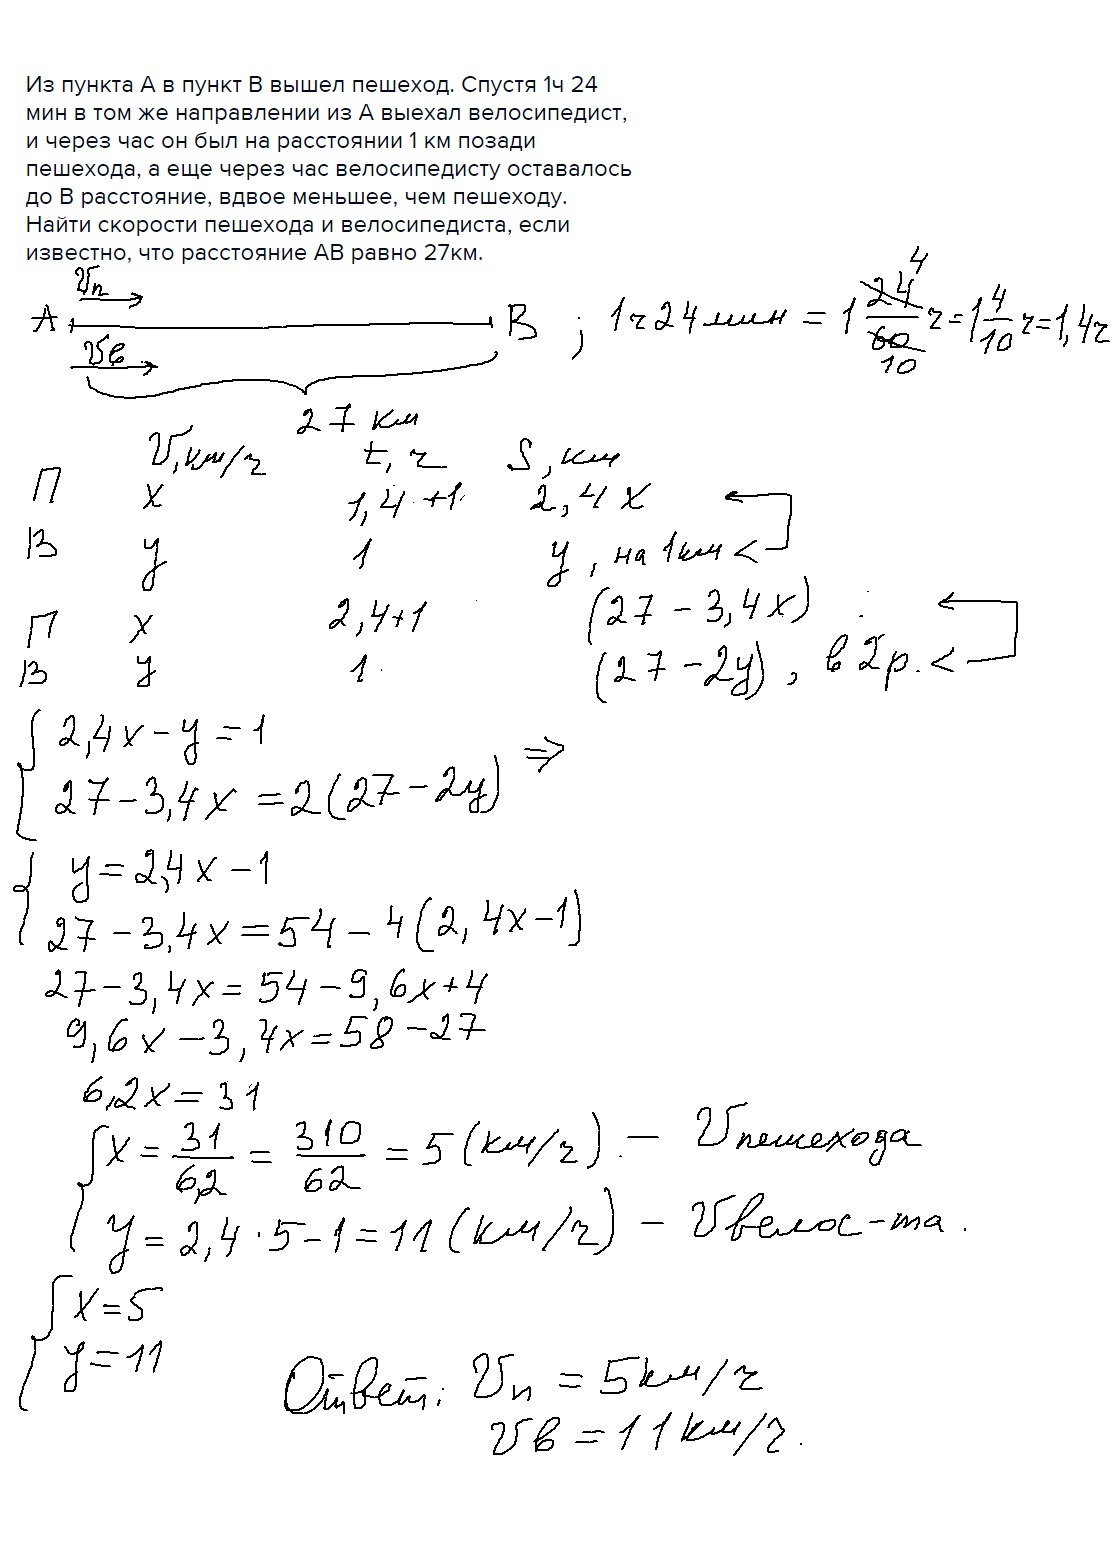 Из пункта А в пункт В вышел пешеход. Спустя 1ч 24
мин в том же направлении из А выехал велосипедист,
и через час он был на расстоянии 1 км позади
пешехода, а еще через час велосипедисту оставалось
до В расстояние, вдвое меньшее, чем пешеходу.
Найти скорости пешехода и велосипедиста, если
известно, что расстояние АВ равно 27км.
Vп
А В ; 1ч 24 мин = 1 24/60 ч = 1 4/10 ч = 1,4ч
Vв
27 км
V, км/ч t, ч S, км
П x 1,4 + 1 2,4x
В y 1 y, на 1км <
П x 2,4+1 (27 - 3,4x)
В y 1 (27 - 2y), в 2р. <
2,4x - y = 1
27 - 3,4x = 2(27 - 2y) ⇒
y = 2,4x - 1
27 - 3,4x = 54 - 4(2,4x - 1)
27 - 3,4x = 54 - 9,6x + 4
9,6x - 3,4x = 58 - 27
6,2x = 31
x = 31/6,2 = 310/62 = 5 (км/ч) - Vпешехода
y = 2,4 · 5 - 1 = 11 (км/ч) - Vвелос-та.
x = 5
y = 11
Ответ: Vп = 5км/ч
Vв = 11км/ч.